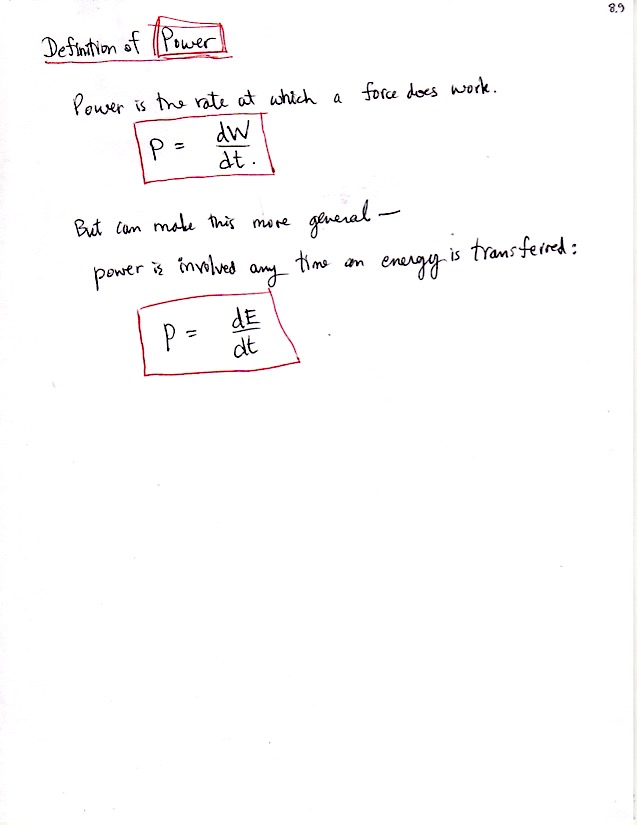 8.9
Definition of Power
Power is the rate at which a force does work.
P = dW/dt.
But can make this more general —
power is involved any time an energy is transferred:
P = dE/dt